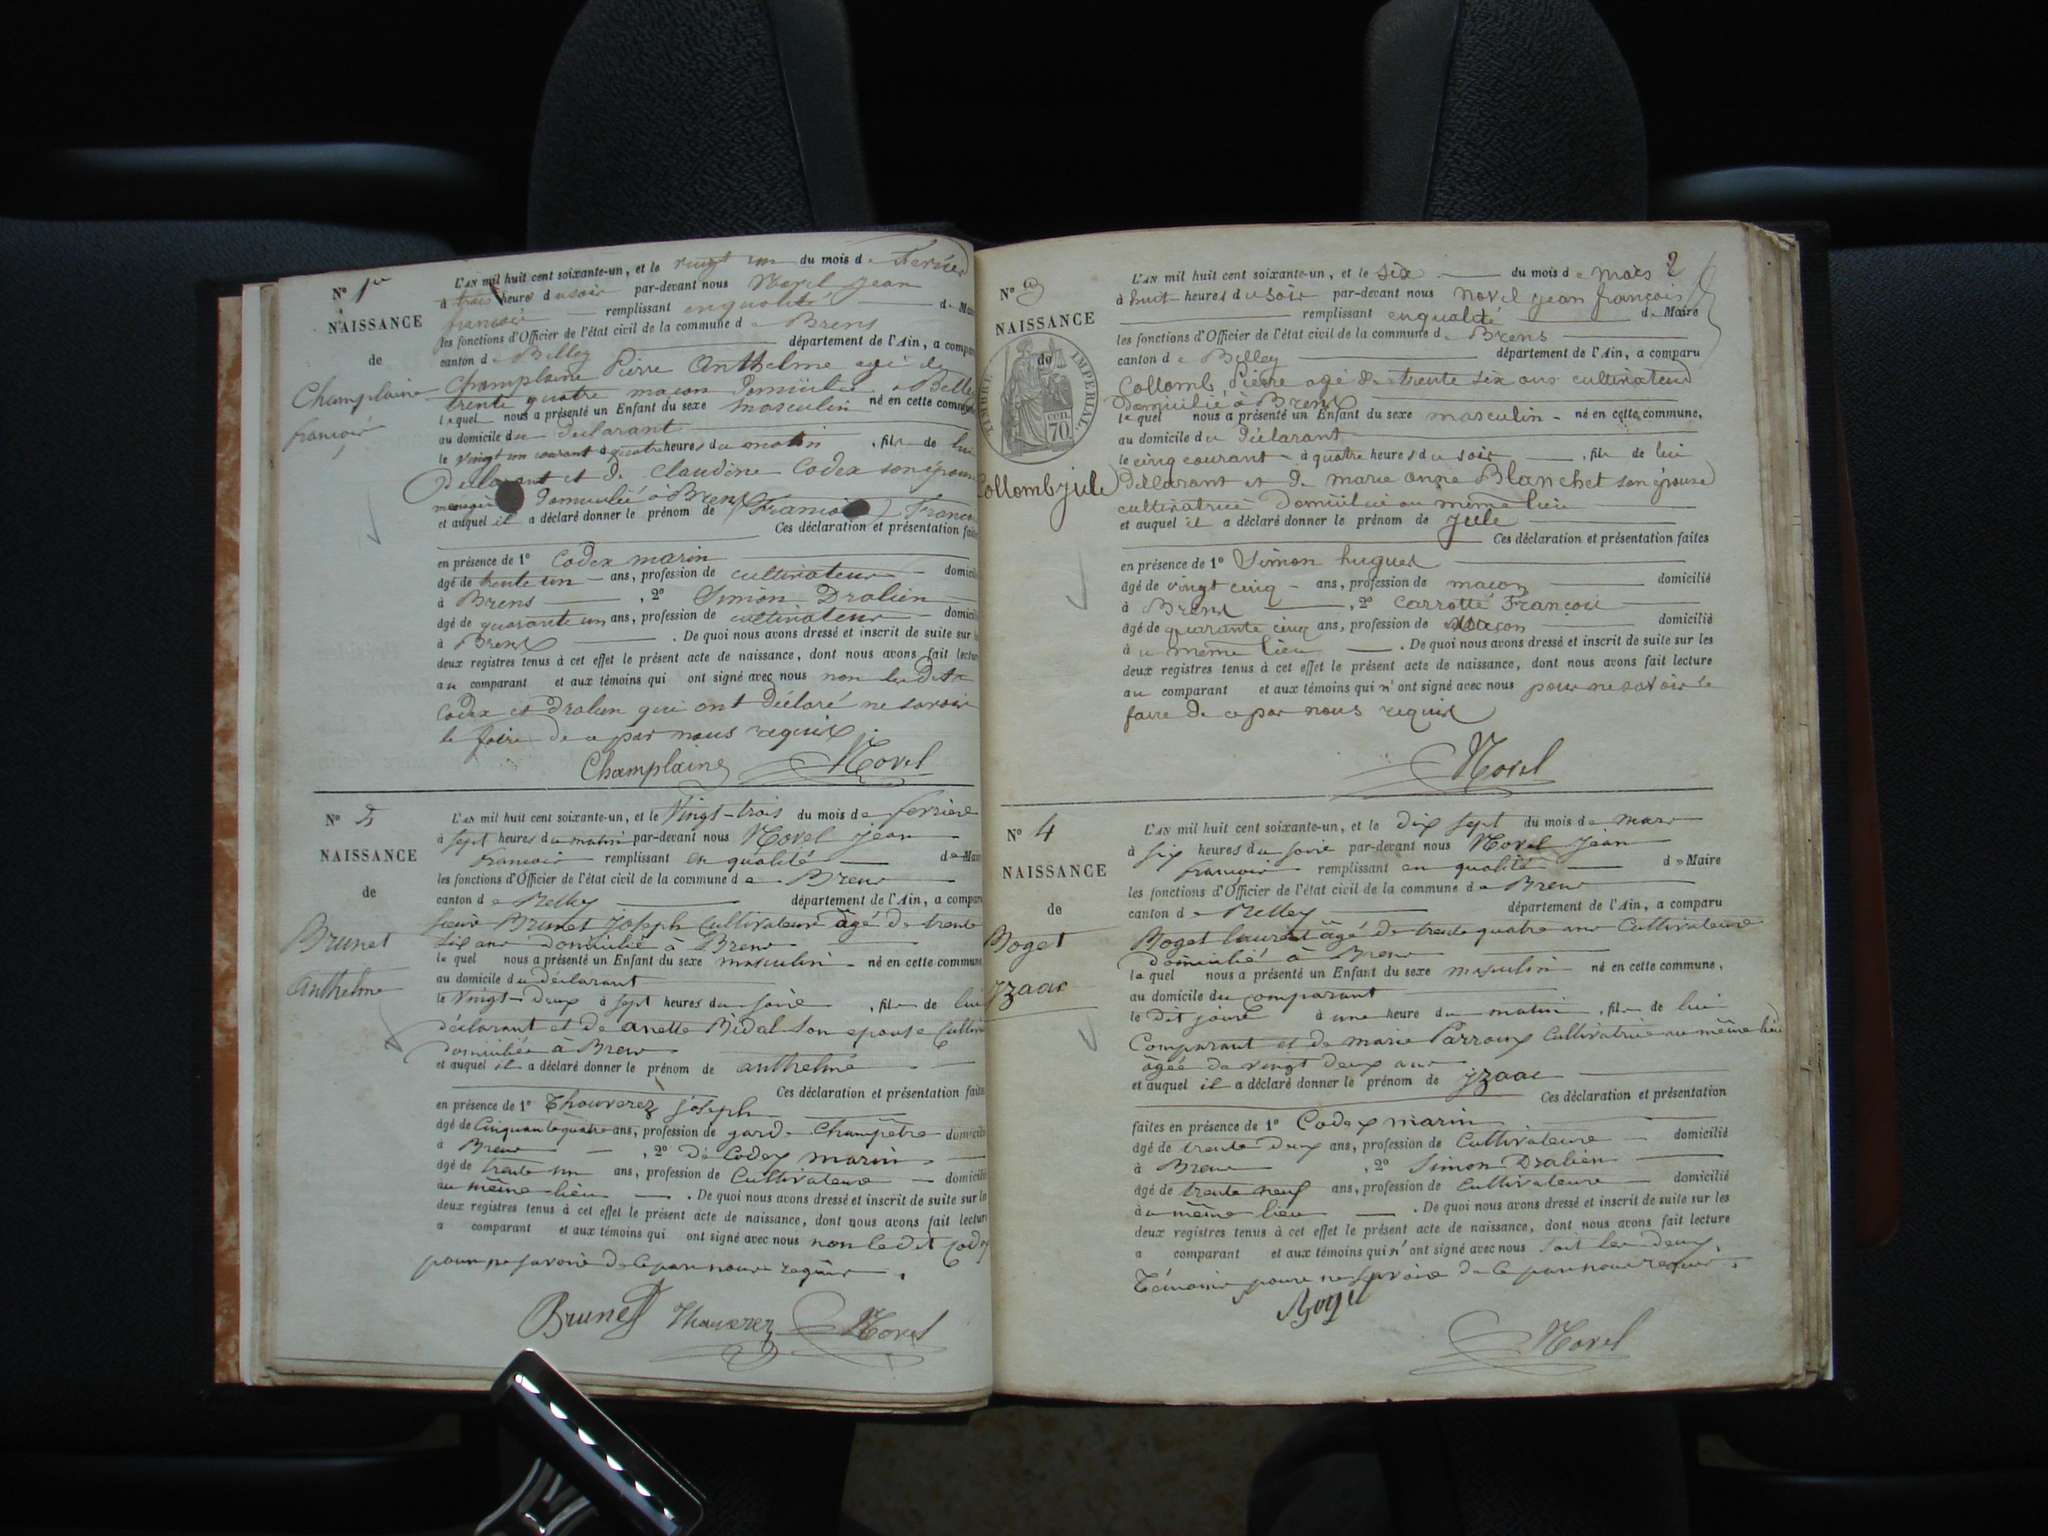 No 1er
NAISSANCE
de
Champlaine
françois
L'AN mil huit cent soixante-un, et le vingt un du mois de Fevrier
à trois heures du soir par-devant nous Novel jean
françois remplissant en qualité de Mai
les fonctions d'Officier de l'état civil de la commune de Brens
canton de Belley département de l'Ain, a compar
Champlaine Pierre Anthelme agé de
trente quatre maçon Domicilié à Belley
lequel nous a présenté un Enfant du sexe masculin né en cette commune
au domicile du Déclarant
le vingt un courant à quatre heures du matin , fils de lui
Déclarant et de Claudine Codex son épouse
Domiciliée à Brens
et auquel il a déclaré donner le prénom de (françois) Françoi
Ces déclaration et présentation faites
en présence de 1o Codex marin
âgé de trente un ans, profession de cultivateur domicilié
à Brens , 2o Simon Dralien
âgé de quarante un ans, profession de cultivateur domicilié
à Brens . De quoi nous avons dressé et inscrit de suite sur les
deux registres tenus à cet effet le présent acte de naissance, dont nous avons fait lecture
au comparant et aux témoins qui ont signé avec nous non les Dits
Codex et Dralien qui ont Déclaré ne savoir
le faire de ce par nous requis
Champlaine Novel
No 2
NAISSANCE
de
Brunet
Anthelme
L'AN mil huit cent soixante-un, et le Vingt-trois du mois de ferriere
à sept heures du matin par-devant nous Novel jean
francois remplissant en qualité de Mai
les fonctions d'Officier de l'état civil de la commune de Brens
canton de Belley département de l'Ain, a compar
Brunet Joseph Cultivateur âgé de trente
six ans domicilié à Brens
lequel nous a présenté un Enfant du sexe masculin né en cette commune
au domicile du déclarant
le Vingt-Deux à sept heures du soire , fils de lui
déclarant et de anette Bidal Son epouse Cultiv
domiciliée à Brens
et auquel il a déclaré donner le prénom de anthelme
Ces déclaration et présentation faites
en présence de 1o Thouverez joseph
âgé de Cinquante quatre ans, profession de garde Champetre domicilié
à Brens , 2o de Codex marin
âgé de trente un ans, profession de Cultivateure domicilié
au même lieu . De quoi nous avons dressé et inscrit de suite sur les
deux registres tenus à cet effet le présent acte de naissance, dont nous avons fait lecture
a comparant et aux témoins qui ont signé avec nous non le dit Codex
pour ne savoire de ce par nous requis .
Brunet Thouverez Novel
2
No 3
NAISSANCE
de
TIMBRE IMPERIAL
70 cen
Collomb jule
L'AN mil huit cent soixante-un, et le Six du mois de mars
à huit heures du soir par-devant nous Novel jean françois
remplissant en qualité de Maire
les fonctions d'Officier de l'état civil de la commune de Brens
canton de Belley département de l'Ain, a comparu
Collomb Pierre agé de trente six ans cultivateur
Domicilié à Brens
lequel nous a présenté un Enfant du sexe masculin né en cette commune,
au domicile du Déclarant
le cinq courant à quatre heures du soir , fils de lui
Déclarant et de marie anne Blanchet son épouse
cultivatrice Domiciliée au même lieu
et auquel il a déclaré donner le prénom de jule
Ces déclaration et présentation faites
en présence de 1o Simon hugues
âgé de vingt cinq ans, profession de maçon domicilié
à Brens , 2o Carrotte François
âgé de quarante cinq ans, profession de Maçon domicilié
au même lieu . De quoi nous avons dressé et inscrit de suite sur les
deux registres tenus à cet effet le présent acte de naissance, dont nous avons fait lecture
au comparant et aux témoins qui n'ont signé avec nous pour ne savoir le
faire de ce par nous requis
Novel
No 4
NAISSANCE
de
Boget
yzaac
L'AN mil huit cent soixante-un, et le dix sept du mois de mars
à six heures du soire par-devant nous Novel jean
francois remplissant en qualité de Maire
les fonctions d'Officier de l'état civil de la commune de Brens
canton de Belley département de l'Ain, a comparu
Boget laurent âgé de trente quatre ans Cultivateure
domicilié à Brens
lequel nous a présenté un Enfant du sexe masculin né en cette commune,
au domicile du comparant
le dit joure à une heure du matin , fils de lui
Comparant et de marie Parroux Cultivatrice au même lieu
âgée de vingt deux ans
et auquel il a déclaré donner le prénom de yzaac
Ces déclaration et présentation
faites en présence de 1o Codex marin
âgé de trente deux ans, profession de Cultivateure domicilié
à Brens , 2o Simon Dralien
âgé de trente neuf ans, profession de Cultivateure domicilié
au même lieu . De quoi nous avons dressé et inscrit de suite sur les
deux registres tenus à cet effet le présent acte de naissance, dont nous avons fait lecture
a comparant et aux témoins qui n'ont signé avec nous soit les deux
Témoins poure ne savoire de ce par nous requis .
Boget
Novel